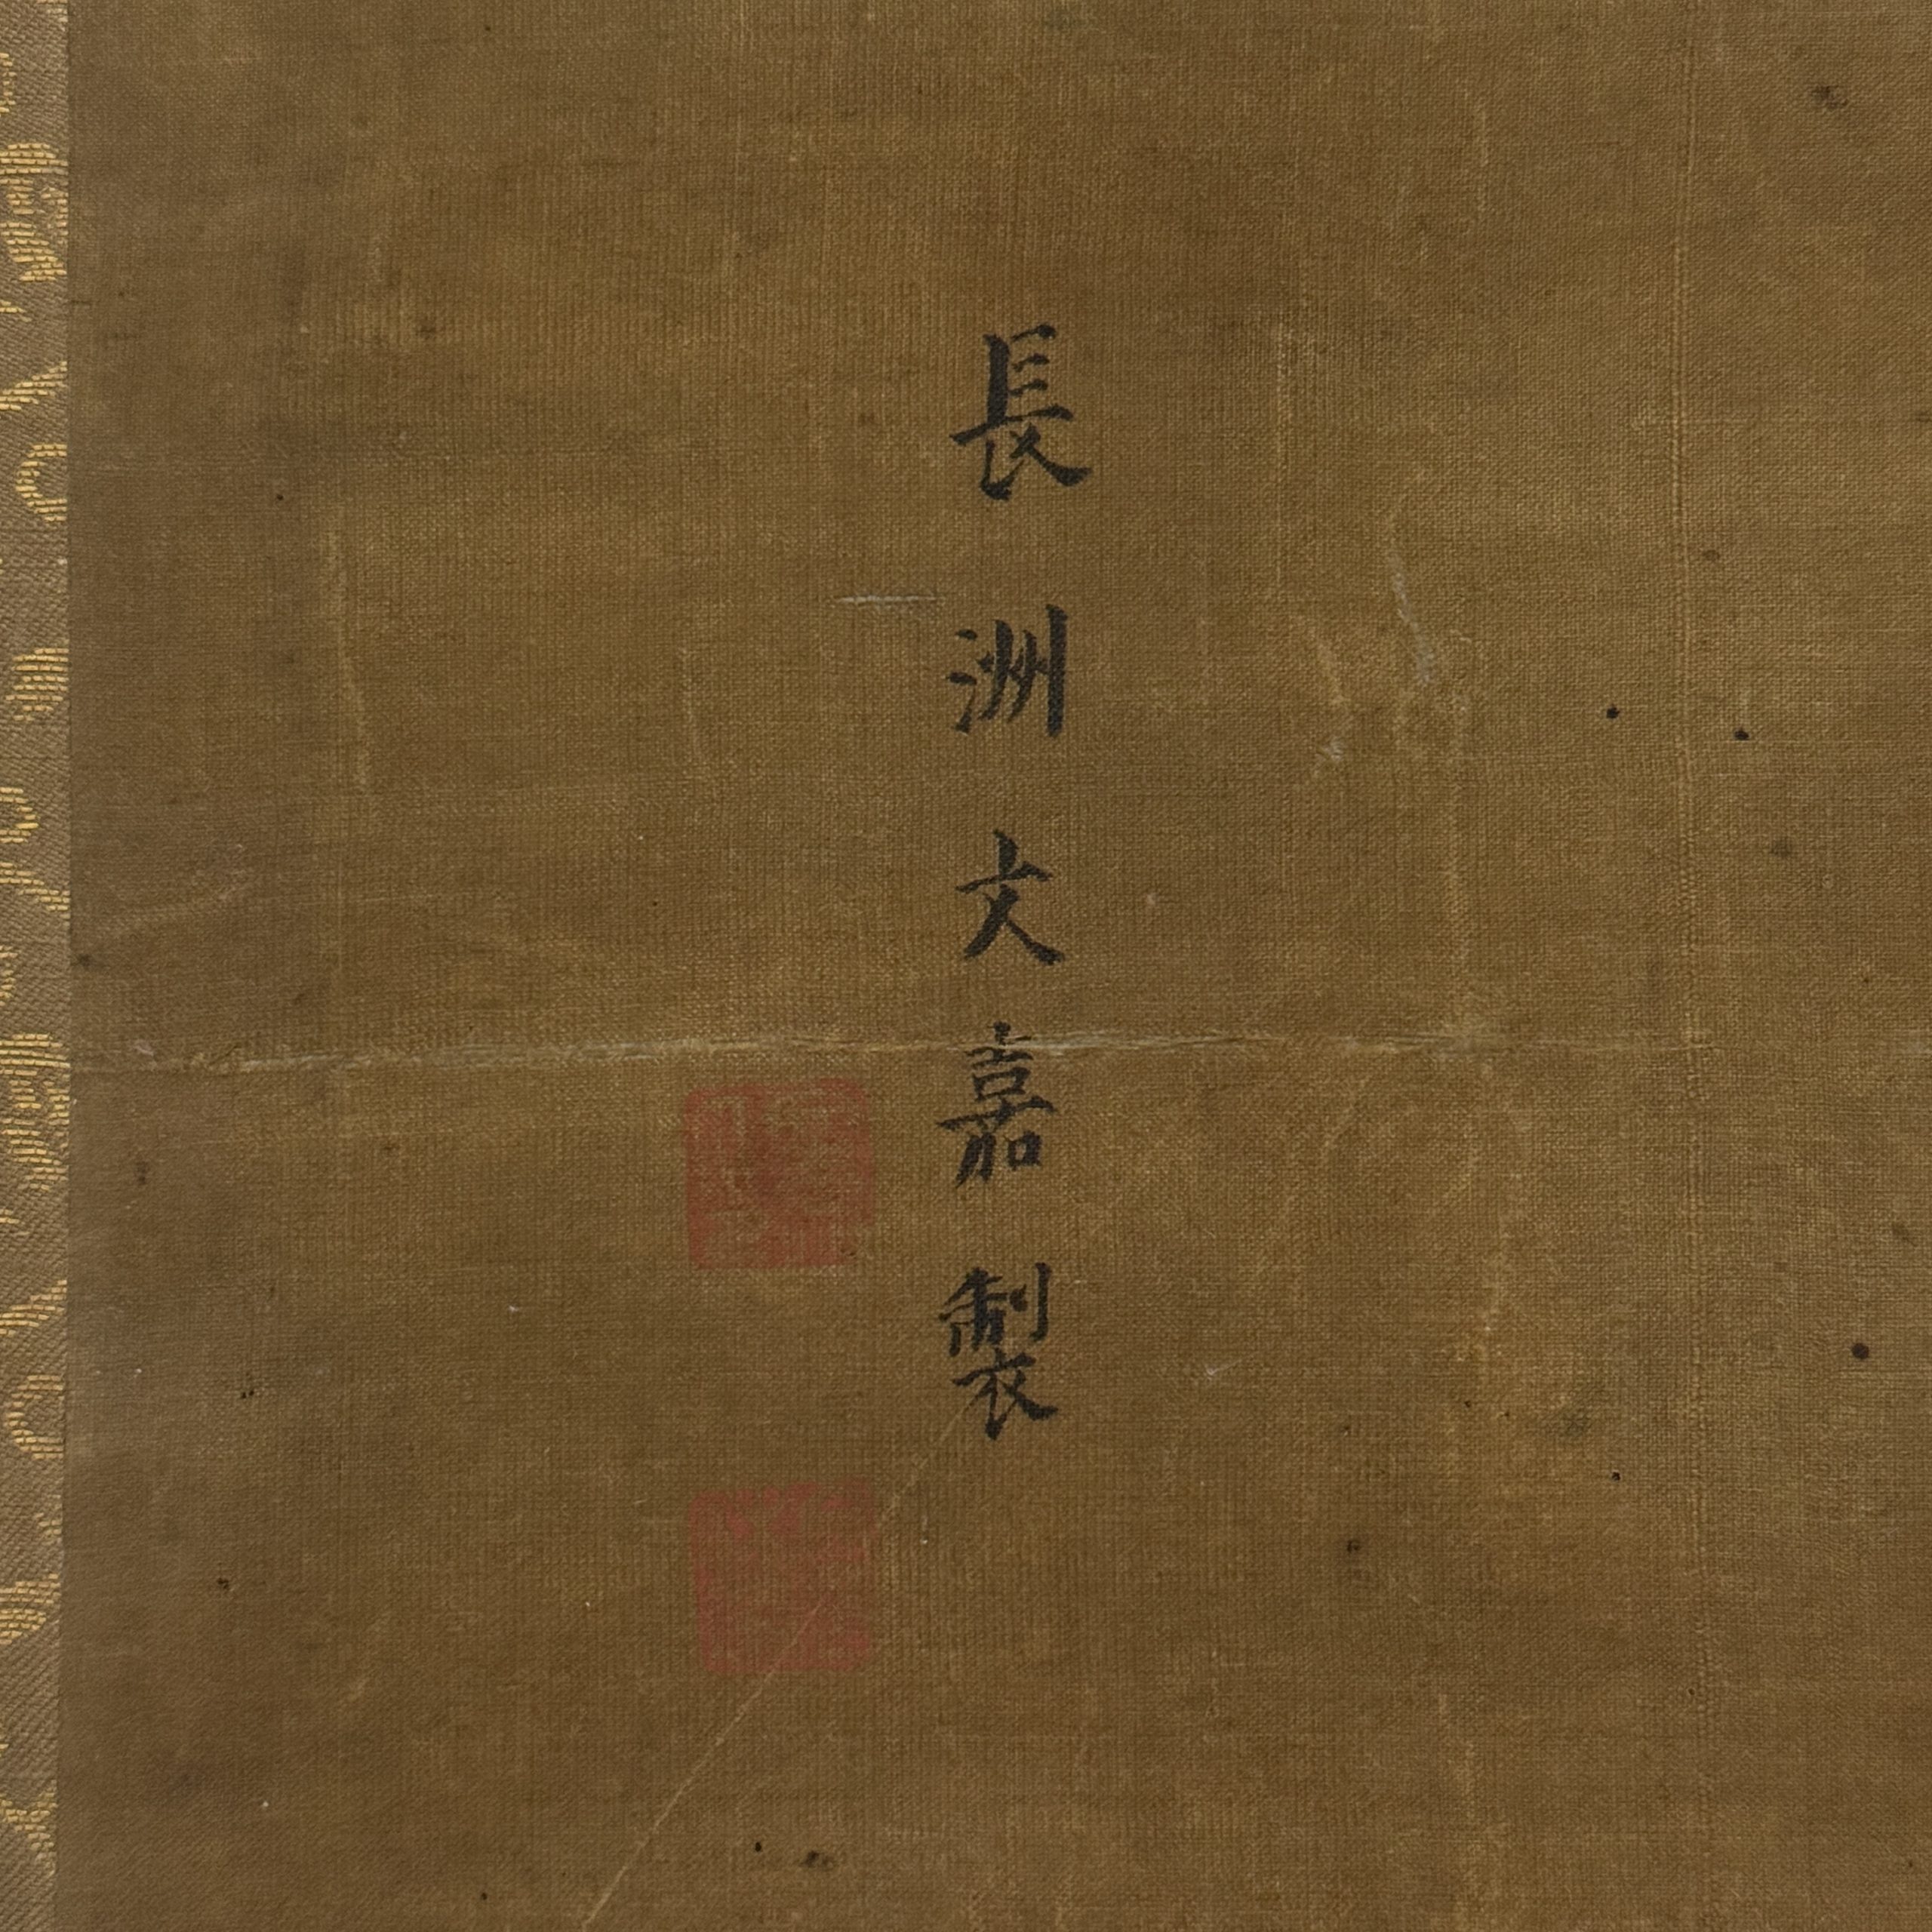 長洲文嘉製